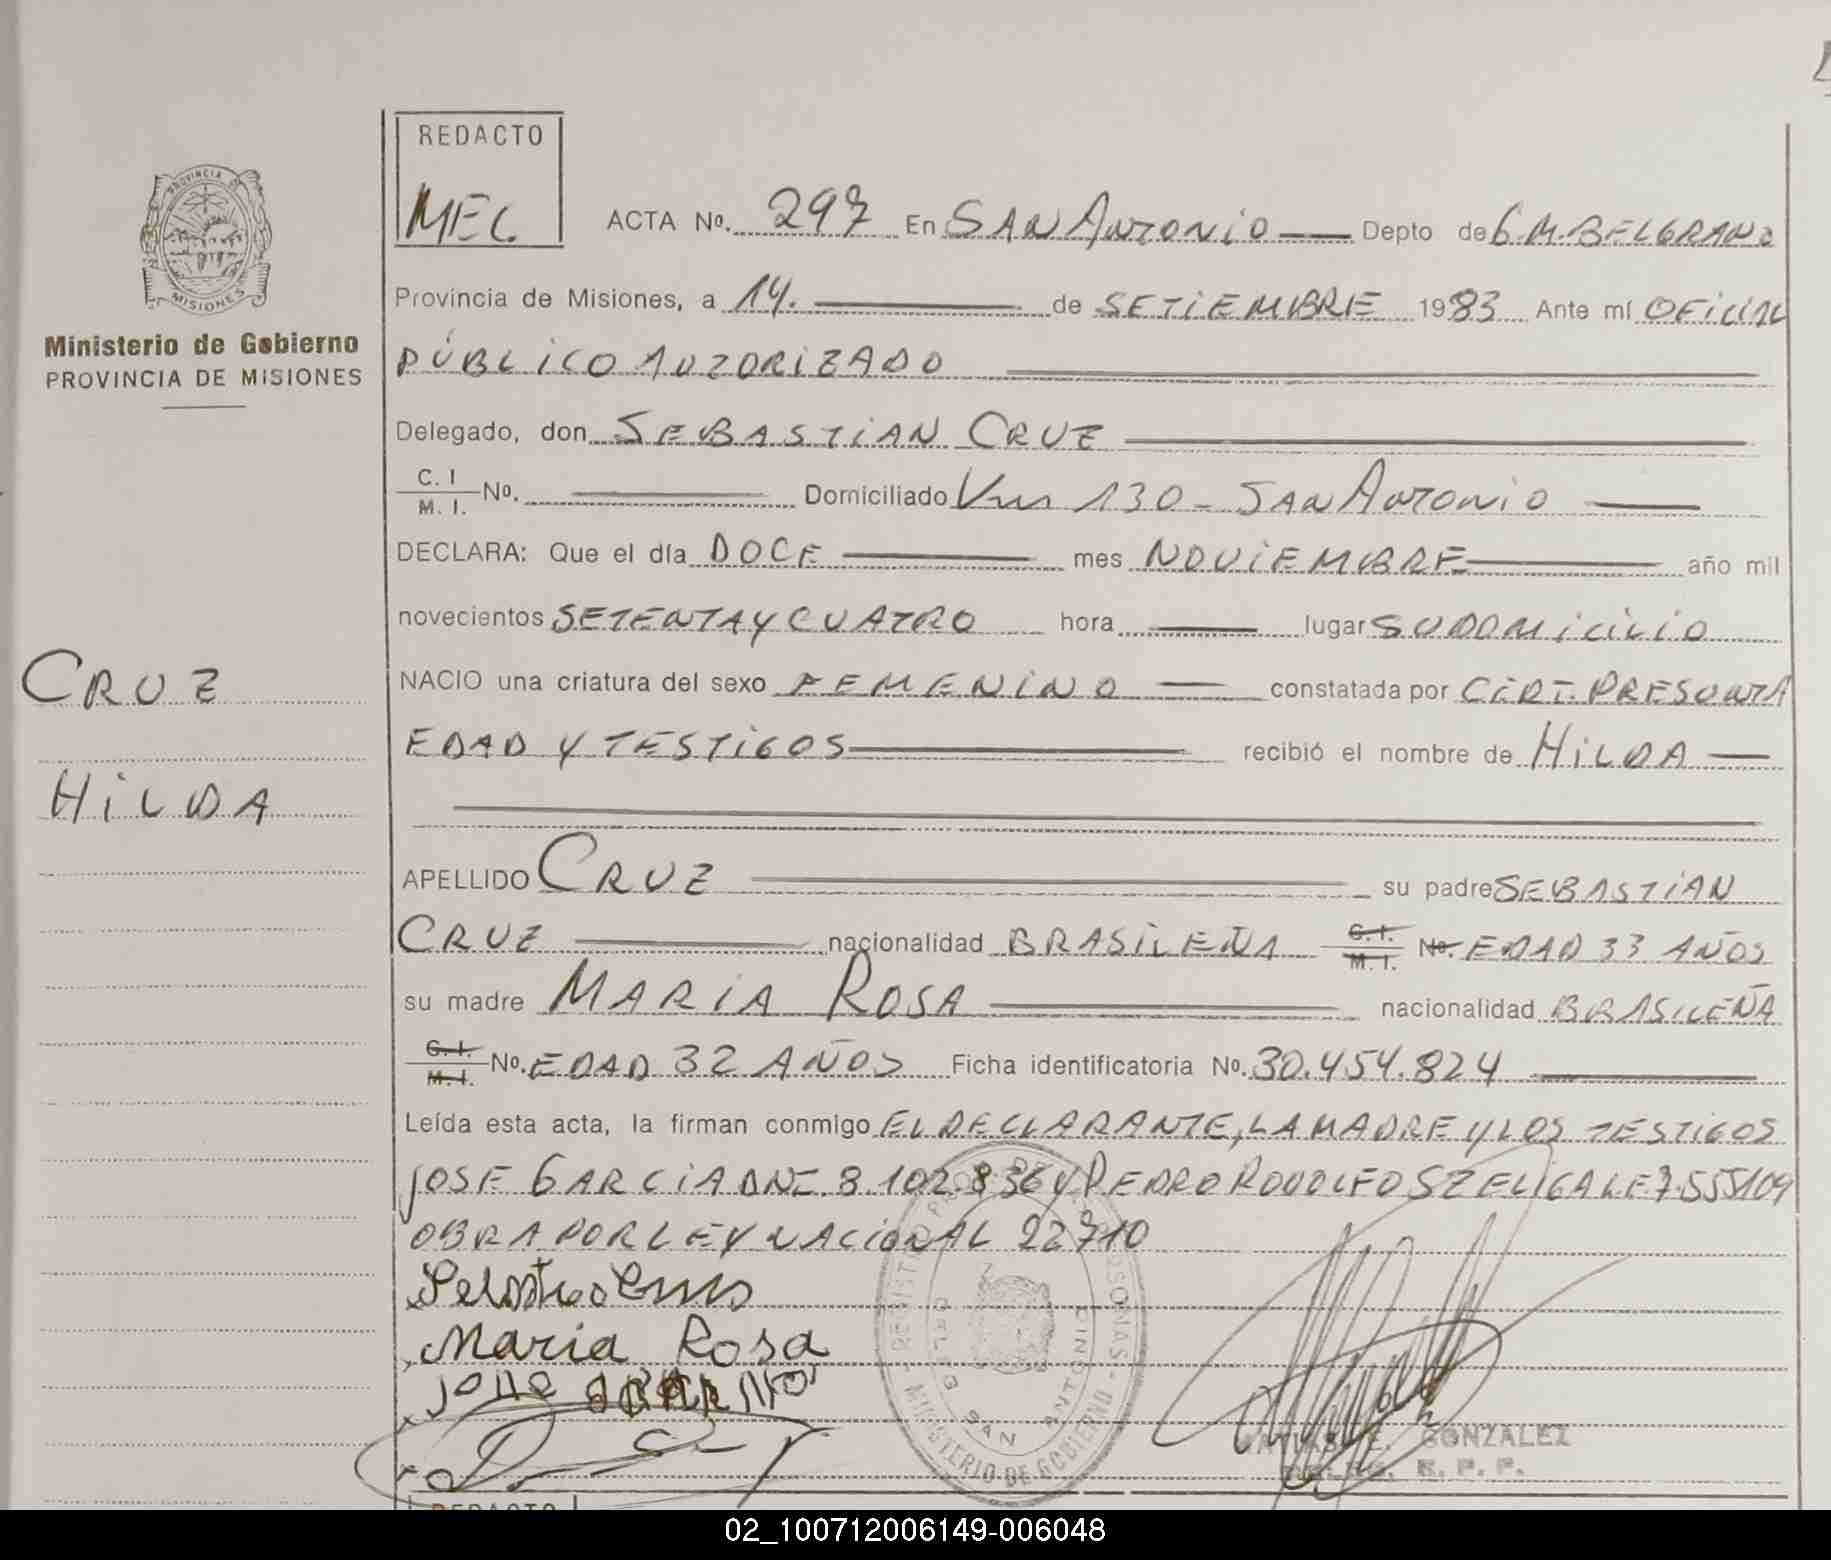 REDACTO
MEC
ACTA Nº. 297 En SAN ANTONIO Depto de G.M. BELGRANO
PROVINCIA DE
MISIONES
Ministerio de Gobierno
PROVINCIA DE MISIONES
Provincia de Misiones, a 14. de SETIEMBRE 1983 Ante mí OFICIAL
PÚBLICO AUTORIZADO
Delegado, don SEBASTIAN CRUZ
C. I
M. I. Nº. Domiciliado Km 130 - SAN ANTONIO
DECLARA: Que el día DOCE mes NOVIEMBRE año mil
novecientos SETENTA Y CUATRO hora lugar SU DOMICILIO
CRUZ
HILDA
NACIO una criatura del sexo FEMENINO constatada por CERT. PRESUNTA
EDAD Y TESTIGOS recibió el nombre de HILDA
APELLIDO CRUZ su padre SEBASTIAN
CRUZ nacionalidad BRASILEÑA C.I. M.I. Nº. EDAD 33 AÑOS
su madre MARIA ROSA nacionalidad BRASILEÑA
C.I. M.I. Nº. EDAD 32 AÑOS Ficha identificatoria Nº. 30.454.824
Leída esta acta, la firman conmigo EL DECLARANTE, LA MADRE Y LOS TESTIGOS
JOSE GARCIA DNI. 8.102.836 Y PEDRO RODOLFO SZELIGA LE 7.555109
OBRA POR LEY NACIONAL 22710
Maria Rosa
MINISTERIO DE GOBIERNO
DELEG SAN ANTONIO
E. GONZALEZ
REDACTO
02_100712006149-006048